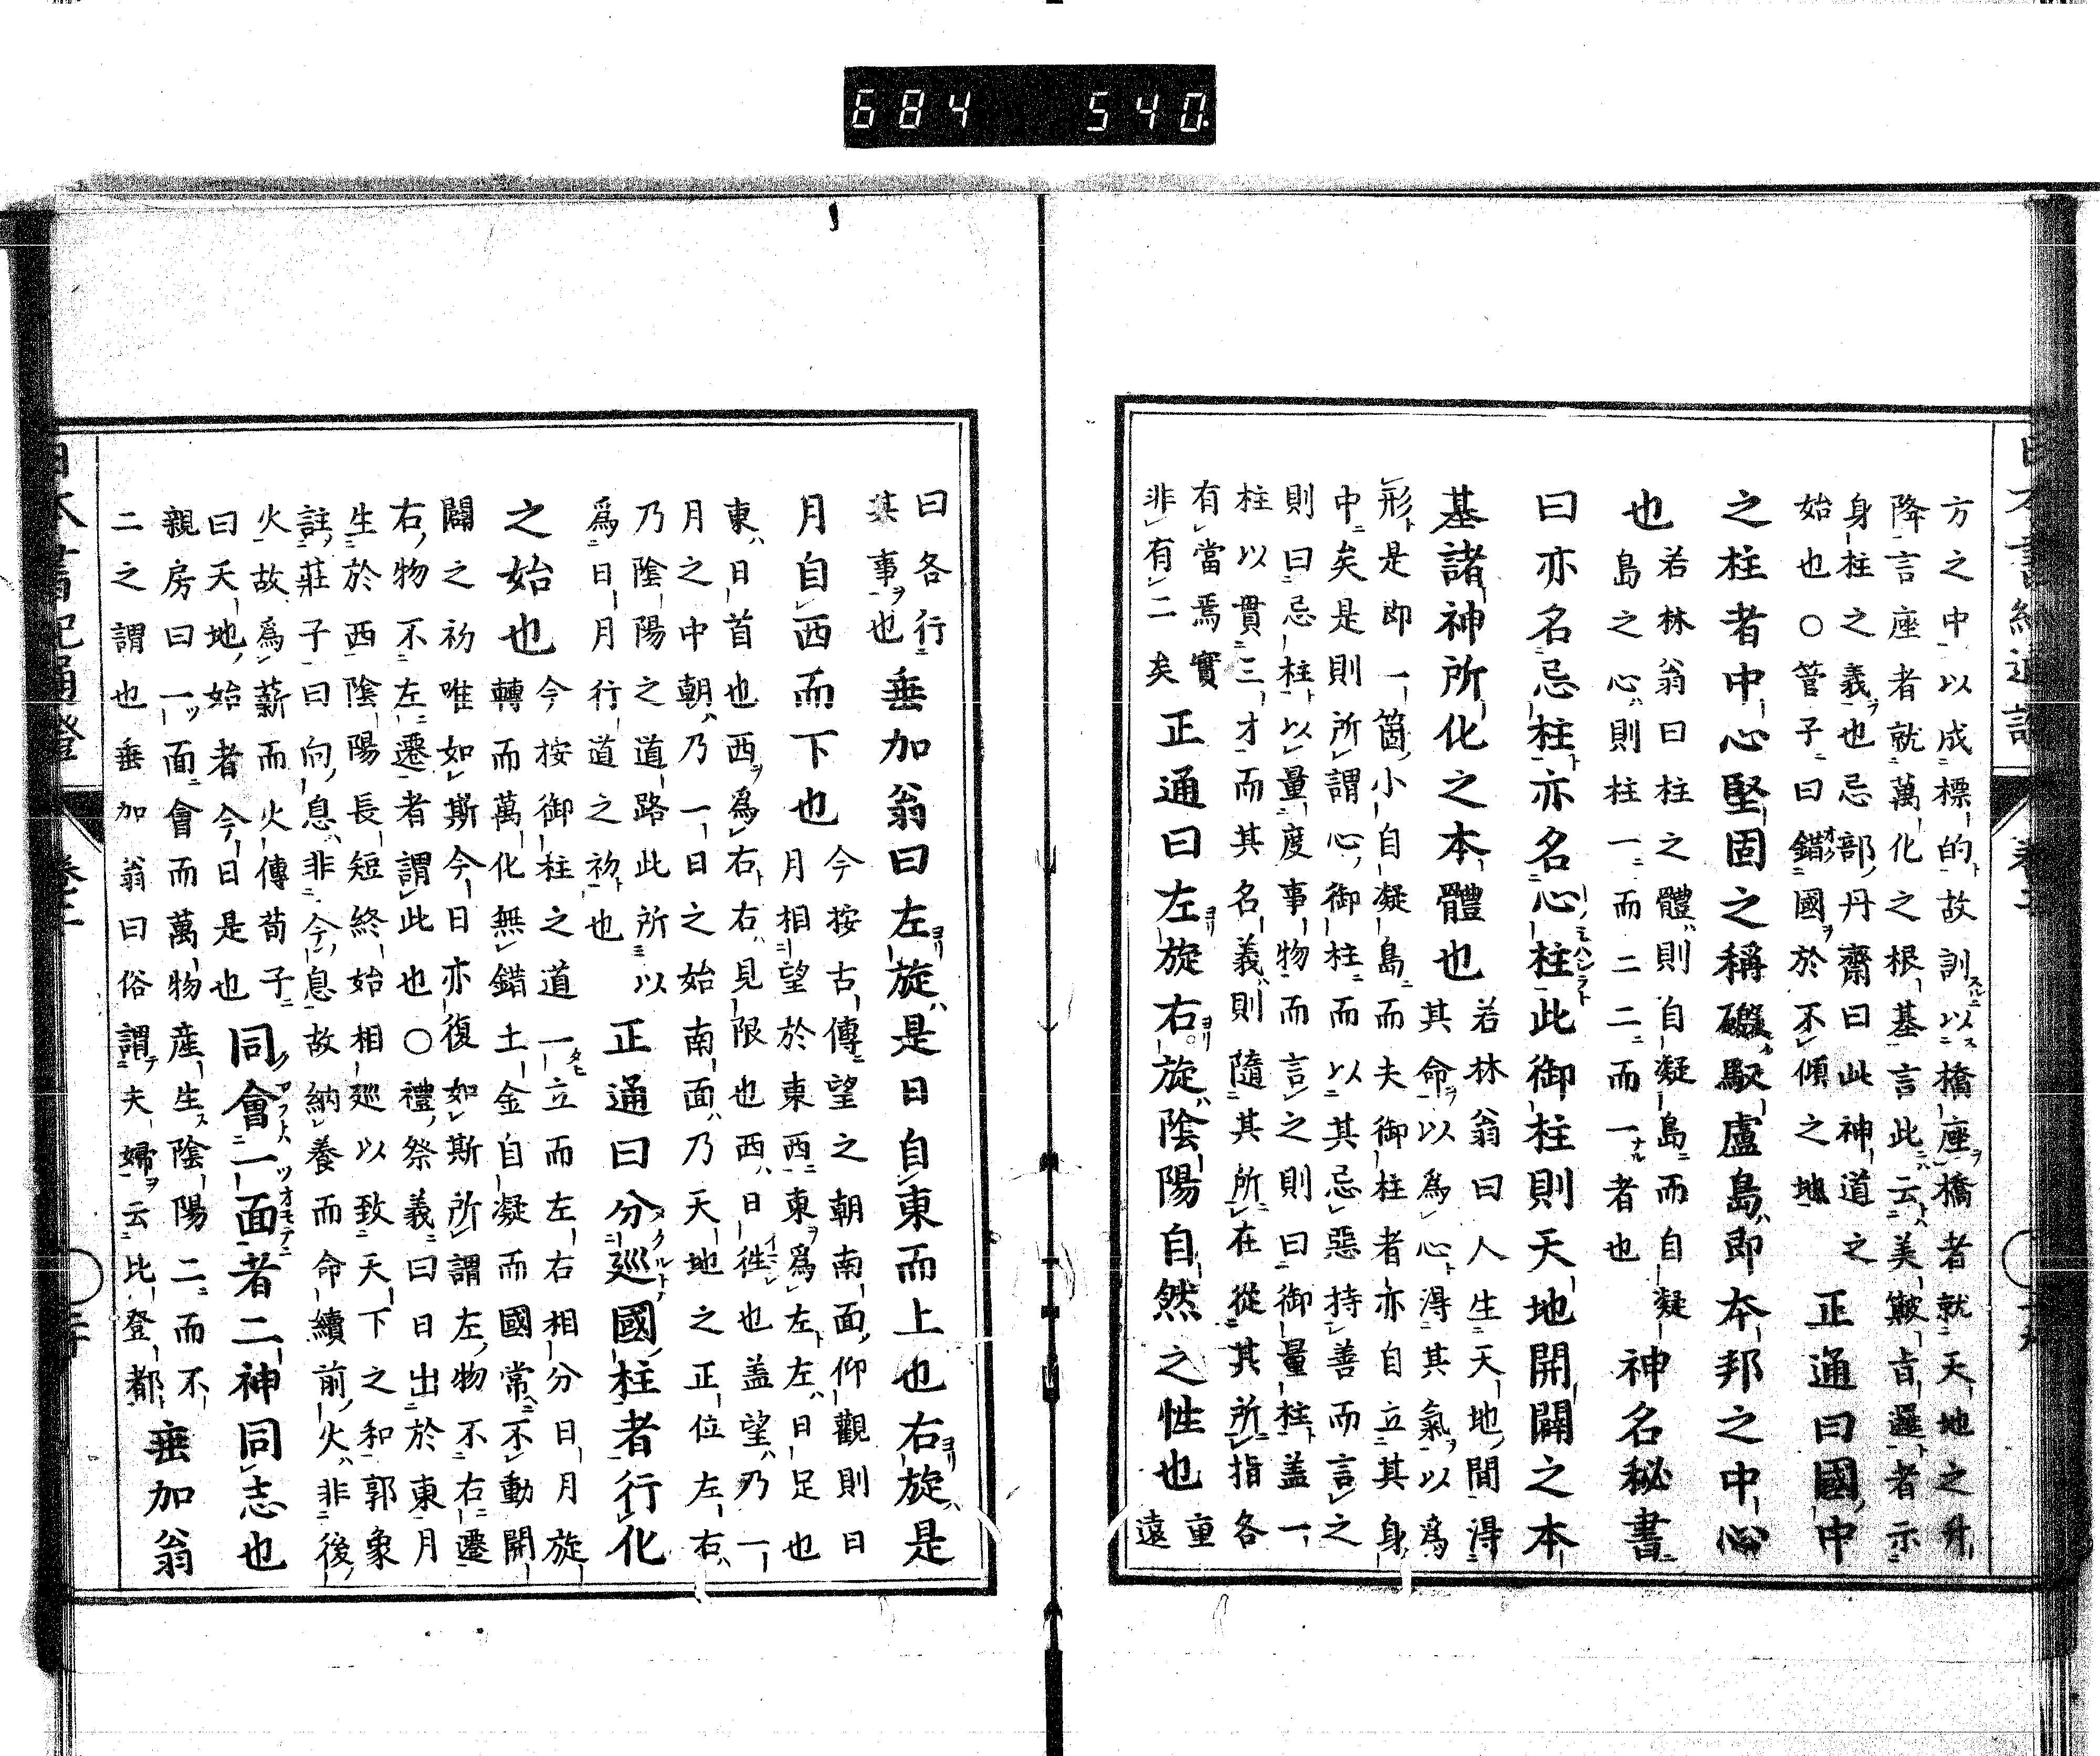 684 540
方之中以成標的故訓以橋座橋者就天地之升
降言座者就萬化之根基言此云美皷旨邏者示
身柱之義也忌部丹齋曰此神道之
始也○管子曰錯國於不傾之地 正通曰國中
之柱者中心堅固之稱磤馭盧島即本邦之中心
也 若林翁曰柱之體則自凝島而自凝
島之心則柱一而二二而一者也 神名秘書
曰亦名忌柱亦名心柱此御柱則天地開闢之本
基諸神所化之本體也 若林翁曰人生天地間得
其命以爲心得其氣以爲
形是即一箇小自凝島而夫御柱者亦自立其身
中矣是則所謂心御柱而以其忌惡持善而言之
則曰忌柱以量度事物而言之則曰御量柱盖一
柱以貫三才而其名義則隨其所在從其所指各
有當焉實
非有二矣 正通曰左旋右旋陰陽自然之性也 重
遠
曰各行
其事也 垂加翁曰左旋是日自東而上也右旋是
月自西而下也 今按古傳望之朝南面仰觀則日
月相望於東西東爲左左日足也
東日首也西爲右右見限也西日徃也盖望乃一
月之中朝乃一日之始南面乃天地之正位左右
乃陰陽之道路此所以
爲日月行道之初也 正通曰分巡國柱者行化
之始也 今按御柱之道一立而左右相分日月旋
轉而萬化無錯土金自凝而國常不動開
闢之初唯如斯今日亦復如斯所謂左物不右遷
右物不左遷者謂此也○禮祭義曰日出於東月
生於西陰陽長短終始相巡以致天下之和郭象
註莊子曰向息非今息故納養而命續前火非後
火故爲薪而火傳荀子
曰天地始者今日是也 同會一面者二神同志也
親房曰一面會而萬物産生陰陽二而不
二之謂也垂加翁曰俗謂夫婦云比登都 垂加翁